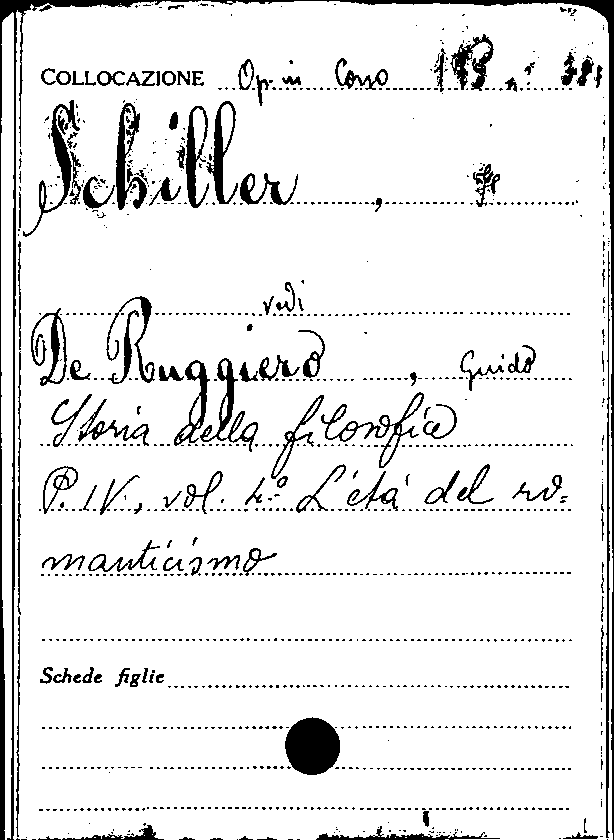 COLLOCAZIONE Op. in Corso 193 n.
Schiller,
vedi
De Ruggiero, Guido
Storia della filosofia
P. IV., vol. 4.º L'etá del ro=
manticismo
Schede figlie